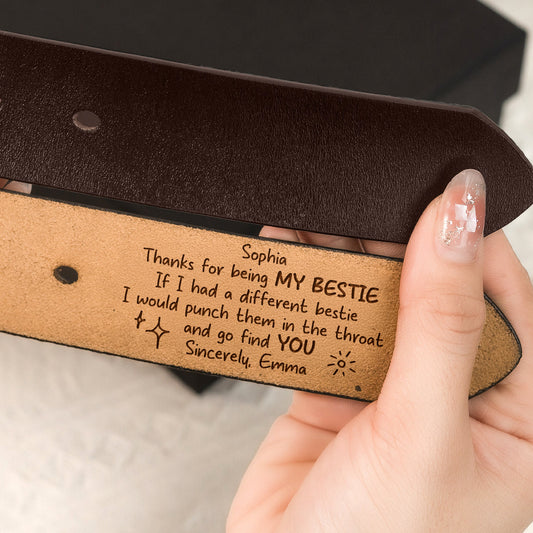 Sophia
Thanks for being MY BESTIE
If I had a different bestie
I would punch them in the throat
and go find YOU
Sincerely, Emma